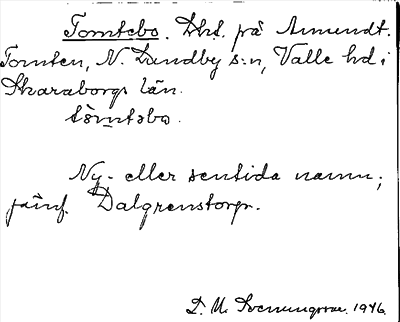 Tomtebo. Lht. på Amundt.
Tomten, N. Lundby s:n, Valle hd i
Skaraborgs län.
tòmtəbo.
Ny- eller sentida namn;
jämf. Dalgrenstorp.
D. M. Svenungsson. 1946.